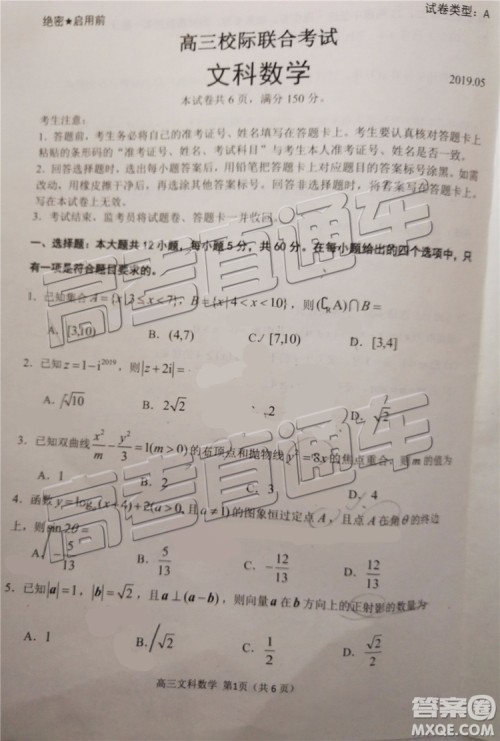 绝密★启用前
试卷类型：A
高三校际联合考试
文科数学
2019.05
本试卷共6页，满分150分。
考生注意：
1. 答题前，考生务必将自己的准考证号、姓名填写在答题卡上。考生要认真核对答题卡上
粘贴的条形码的“准考证号、姓名、考试科目”与考生本人准考证号、姓名是否一致。
2. 回答选择题时，选出每小题答案后，用铅笔把答题卡上对应题目的答案标号涂黑。如需
改动，用橡皮擦干净后，再选涂其它答案标号。回答非选择题时，将答案写在答题卡上。
写在本试卷上无效。
3. 考试结束，监考员将试题卷、答题卡一并收回。
一、选择题：本大题共12小题，每小题5分，共60分。在每小题给出的四个选项中，只
有一项是符合题目要求的。
1. 已知集合 A={x|3≤x<7}，B={x|4<x<10}，则(∁ᵣA)∩B=
A. [3,10) B. (4,7) C. [7,10) D. [3,4]
2. 已知 z=1-i²⁰¹⁹，则|z+2i|=
A. √10 B. 2√2 2 D. √2
3. 已知双曲线 x²/m - y²/3 =1(m>0)的右顶点和抛物线 y²=8x的焦点重合，则m的值为
A. 1 B. 2 C. 3 D. 4
4. 函数 y=logₐ(x+4)+2(a>0,且a≠1)的图象恒过定点A，且点A在角θ的终边
上，则sin2θ=
A. -5/13 B. 5/13 C. -12/13 D. 12/13
5. 已知|a|=1，|b|=√2，且a⊥(a-b)，则向量a在b方向上的正射影的数量为
A. 1 B. √2 C. 1/2 D. √2/2
高三文科数学 第1页（共6页）
高考直通车
高考直通车
答案圈
DAANQUAN.COM